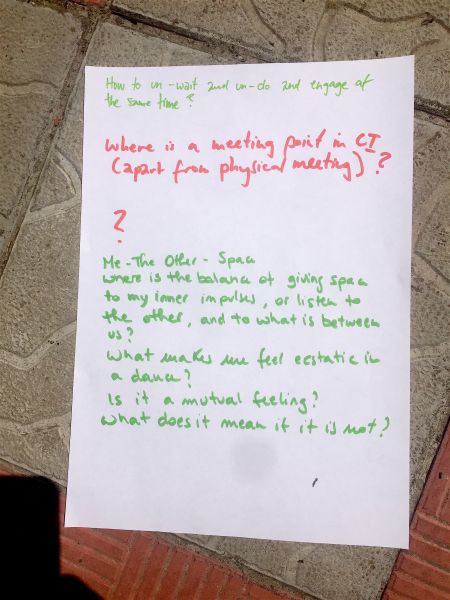 How to un-wait and un-do and engage at
the same time?
Where is a meeting point in CI
(apart from physical meeting)?
?
Me - The Other - Space
Where is the balance of giving space
to my inner impulses, or listen to
the other, and to what is between
us?
What makes me feel ecstatic in
a dance?
Is it a mutual feeling?
What does it mean if it is not?